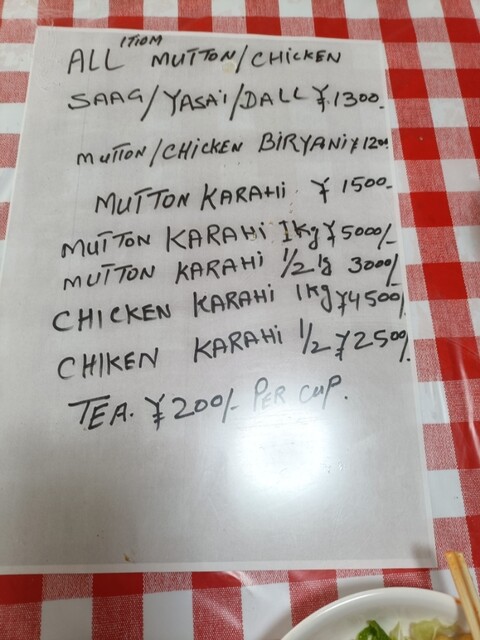 ALL ITIOM MUTTON/CHICKEN
SAAG/YASAI/DALL ¥1300.
MUTTON/CHICKEN BIRYANI ¥1200
MUTTON KARAHI ¥ 1500-
MUTTON KARAHI 1kg ¥5000/-
MUTTON KARAHI 1/2 kg 3000/-
CHICKEN KARAHI 1kg ¥4500/.
CHIKEN KARAHI 1/2 ¥2500/.
TEA. ¥200/- PER CUP.